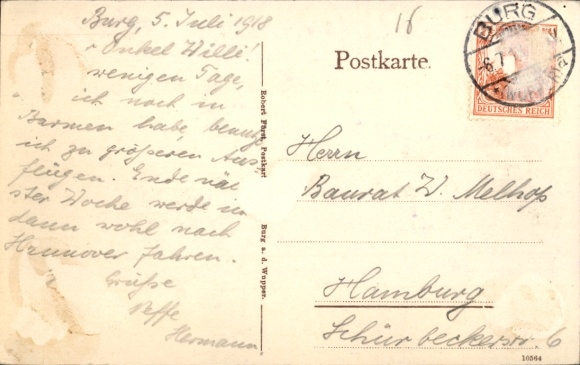 Burg, 5. Juli 1918
r Onkel Willi!
wenigen Tage,
ich noch in
Barmen habe, benutze
ich zu größeren Aus
flügen. Ende näc
ster Woche werde ich
dann wohl nach
Hannover fahren.
Grüße
Neffe
Hermann
Robert Fürst, Postkart
Burg a. d. Wupper.
16
Postkarte.
BURG
DEUTSCHES REICH
Herrn
Baurat W. Melhop
Hamburg
Schürbeckerstr. 6
10364